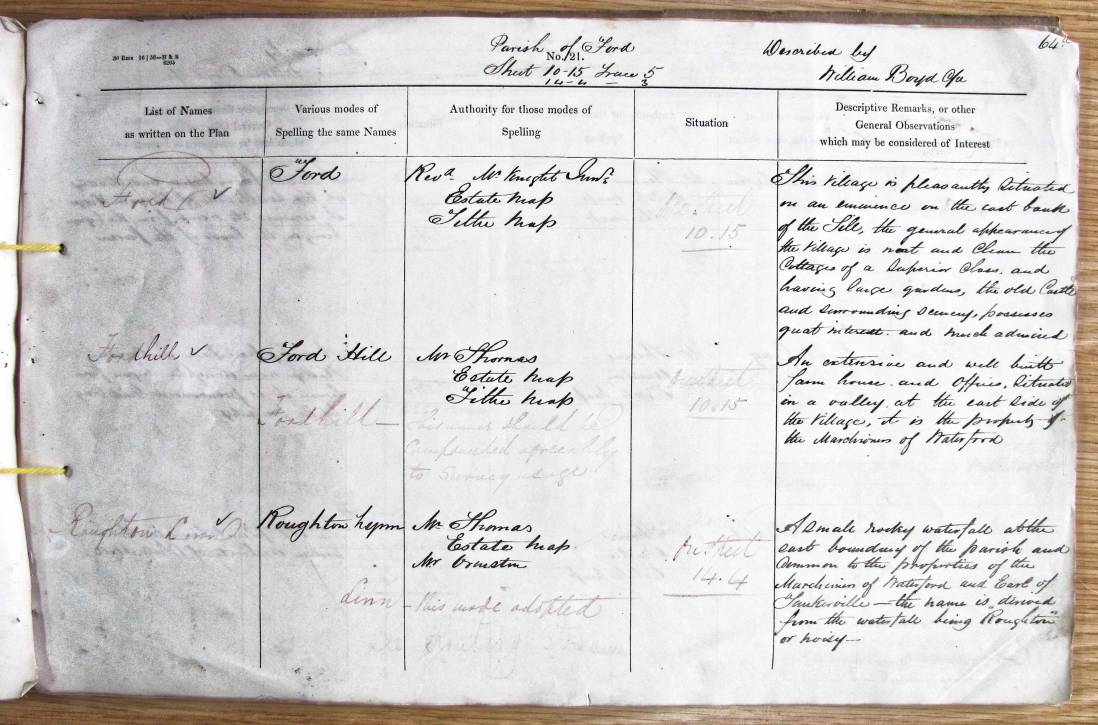 64
Parish of Ford
No. 21.
Sheet 10-15 Trace 5
14-4 — 3
Described by
William Boyd C/a
List of Names
as written on the Plan
Various modes of
Spelling the same Names
Authority for those modes of
Spelling
Situation
Descriptive Remarks, or other
General Observations
which may be considered of Interest
Ford
Ford
Revd. Mc Knight Junr.
Estate Map
Tithe Map
10.15
This Village is pleasantly situated
on an eminence on the east bank
of the Till, the general appearance of
the Village is neat and Clean the
Cottages of a Superior Class. and
having large gardens, the old Castle
and surrounding scenery, possesses
great interest. and much admired
Fordhill
Ford Hill
Mr Thomas
Estate Map
Tithe Map
Fordhill —
This name should be
Compounded agreeably
to Survey usage
10.15
An extensive and well built
farm house. and Offices, Situated
in a valley. at the east side of
the Village, it is the property of
the Marchioness of Waterford
Roughton Linn
Roughton lynn
Mr. Thomas
Estate Map.
Mr Ormston
Linn — this mode adopted
14.4
A small rocky waterfall at the
east boundary of the parish and
Common to the properties of the
Marchioness of Waterford and Earl of
Tankerville — the name is derived
from the waterfall being "Roughton"
or noisy —